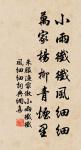 小雨纖纖風細細
萬家楊柳青煙里
朱服漁家傲小雨纖纖
風細細詞典網集